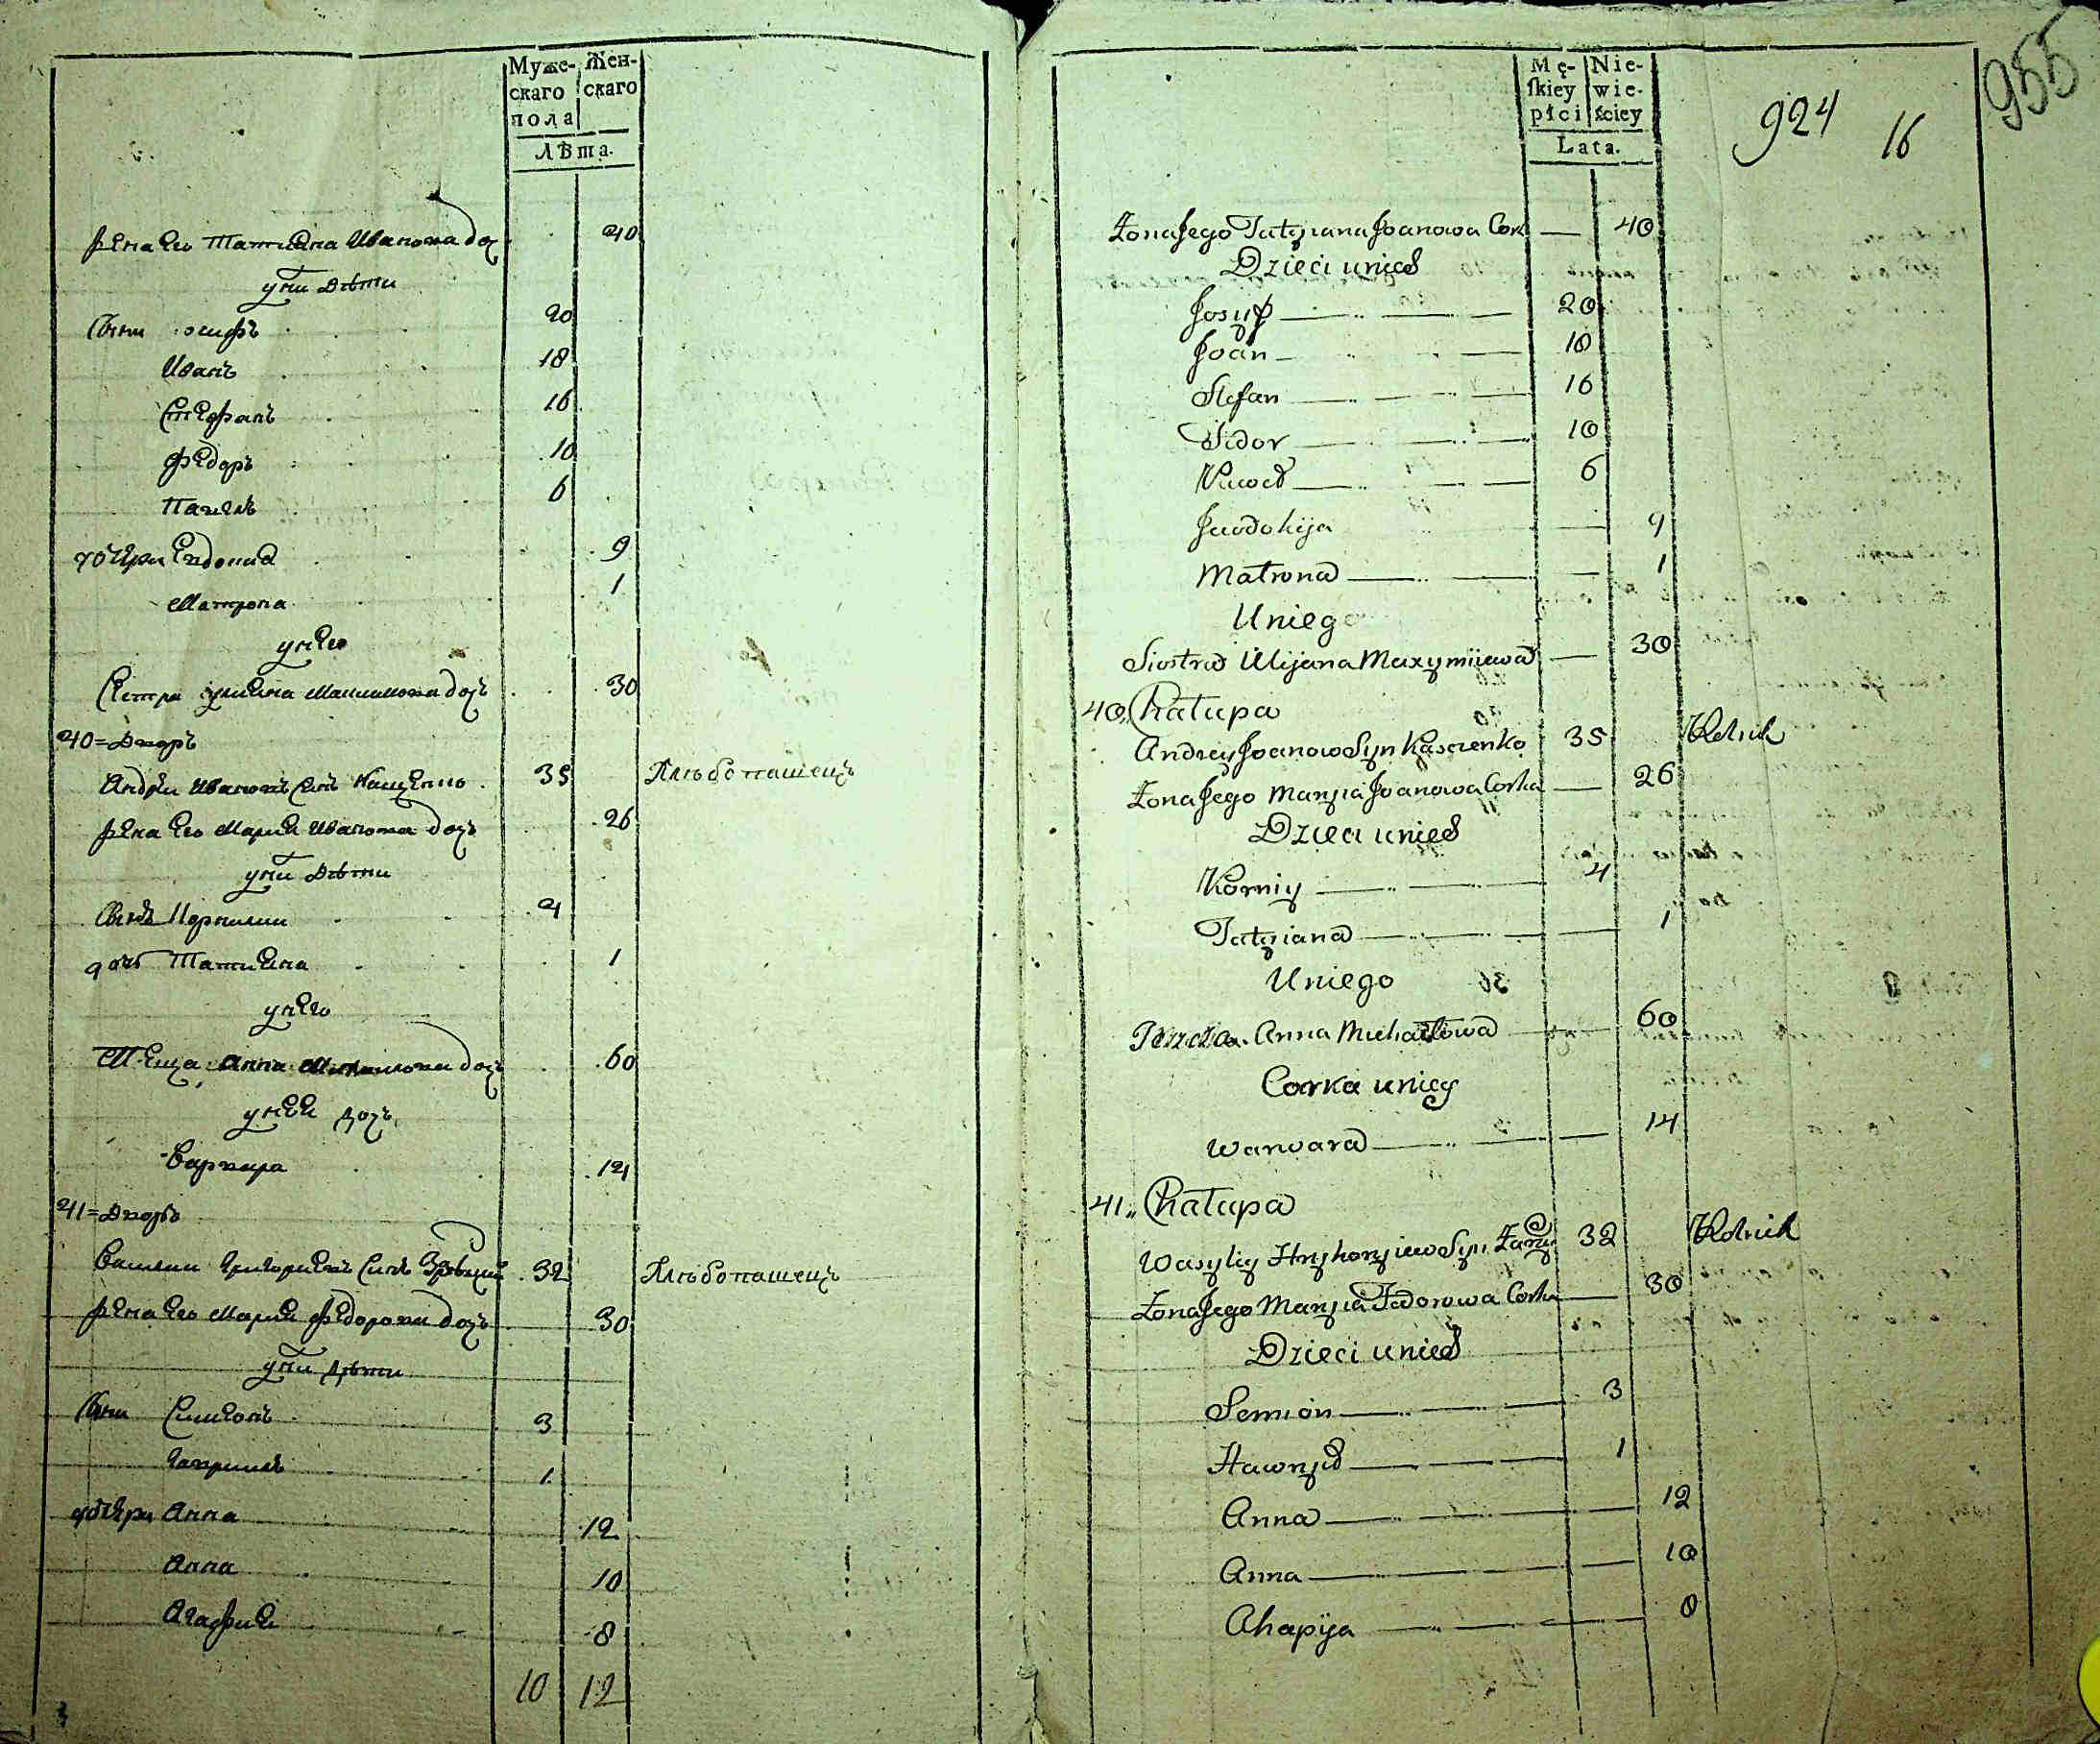 Муже-
скаго
пола
Жен-
скаго
Лѣта.
жена его Татиана Иванова доч 40
у ни дѣти
Сыни осифъ 20
Иванъ 18
Стефанъ 16
Федоръ 10
Павелъ 6
дочери Евдокиа 9
Матрона 1
у него
Сестра улиана Максимова дочъ 30
40=Дворъ
Андрей Ивановъ синъ Кащенко 35 Хлѣбопашецъ
жена его Мария Иванова дочъ 26
у ни дѣти
Синъ Корнилии 4
дочъ Татиана 1
у него
Теща Анна Михаилова дочъ 60
у неи дочъ
Варвара 14
41=Дворъ
Василии Григориевъ синъ 32 Хлѣбопашецъ
жена его Мария Федорова дочъ 30
у ни дѣти
Сыни Симеонъ 3
Гаврилъ 1
дочери Анна 12
Анна 10
Агафия 8
10 12
Mę-
skiey
płci
Nie-
wie-
ściey
Lata.
924
16
955
Żona Jego Tatyiana Joanowa Cor — 40
Dzieci unich
Josyp 20
Joan 18
Stefan 16
Fedor 10
Pawel 6
Jewdokija 9
Matrona 1
Uniego
Siostra Ulijana Maxymijewa — 30
40„ Chałupa
Andrey Joanow Syn Kaszczenko 35 Rolnik
Żona Jego Maryia Joanowa Corka — 26
Dzieci unich
Korniy 4
Tatyiana 1
Uniego
Anna Michałowa 60
Corka uniey
Warwara 14
41„ Chałupa
Wasyliy Hryhoryiew Syn 32 Rolnik
Żona Jego Maryia Fedorowa Corka — 30
Dzieci unich
Semion 3
Hawryło 1
Anna 12
Anna 10
Ahapija 8